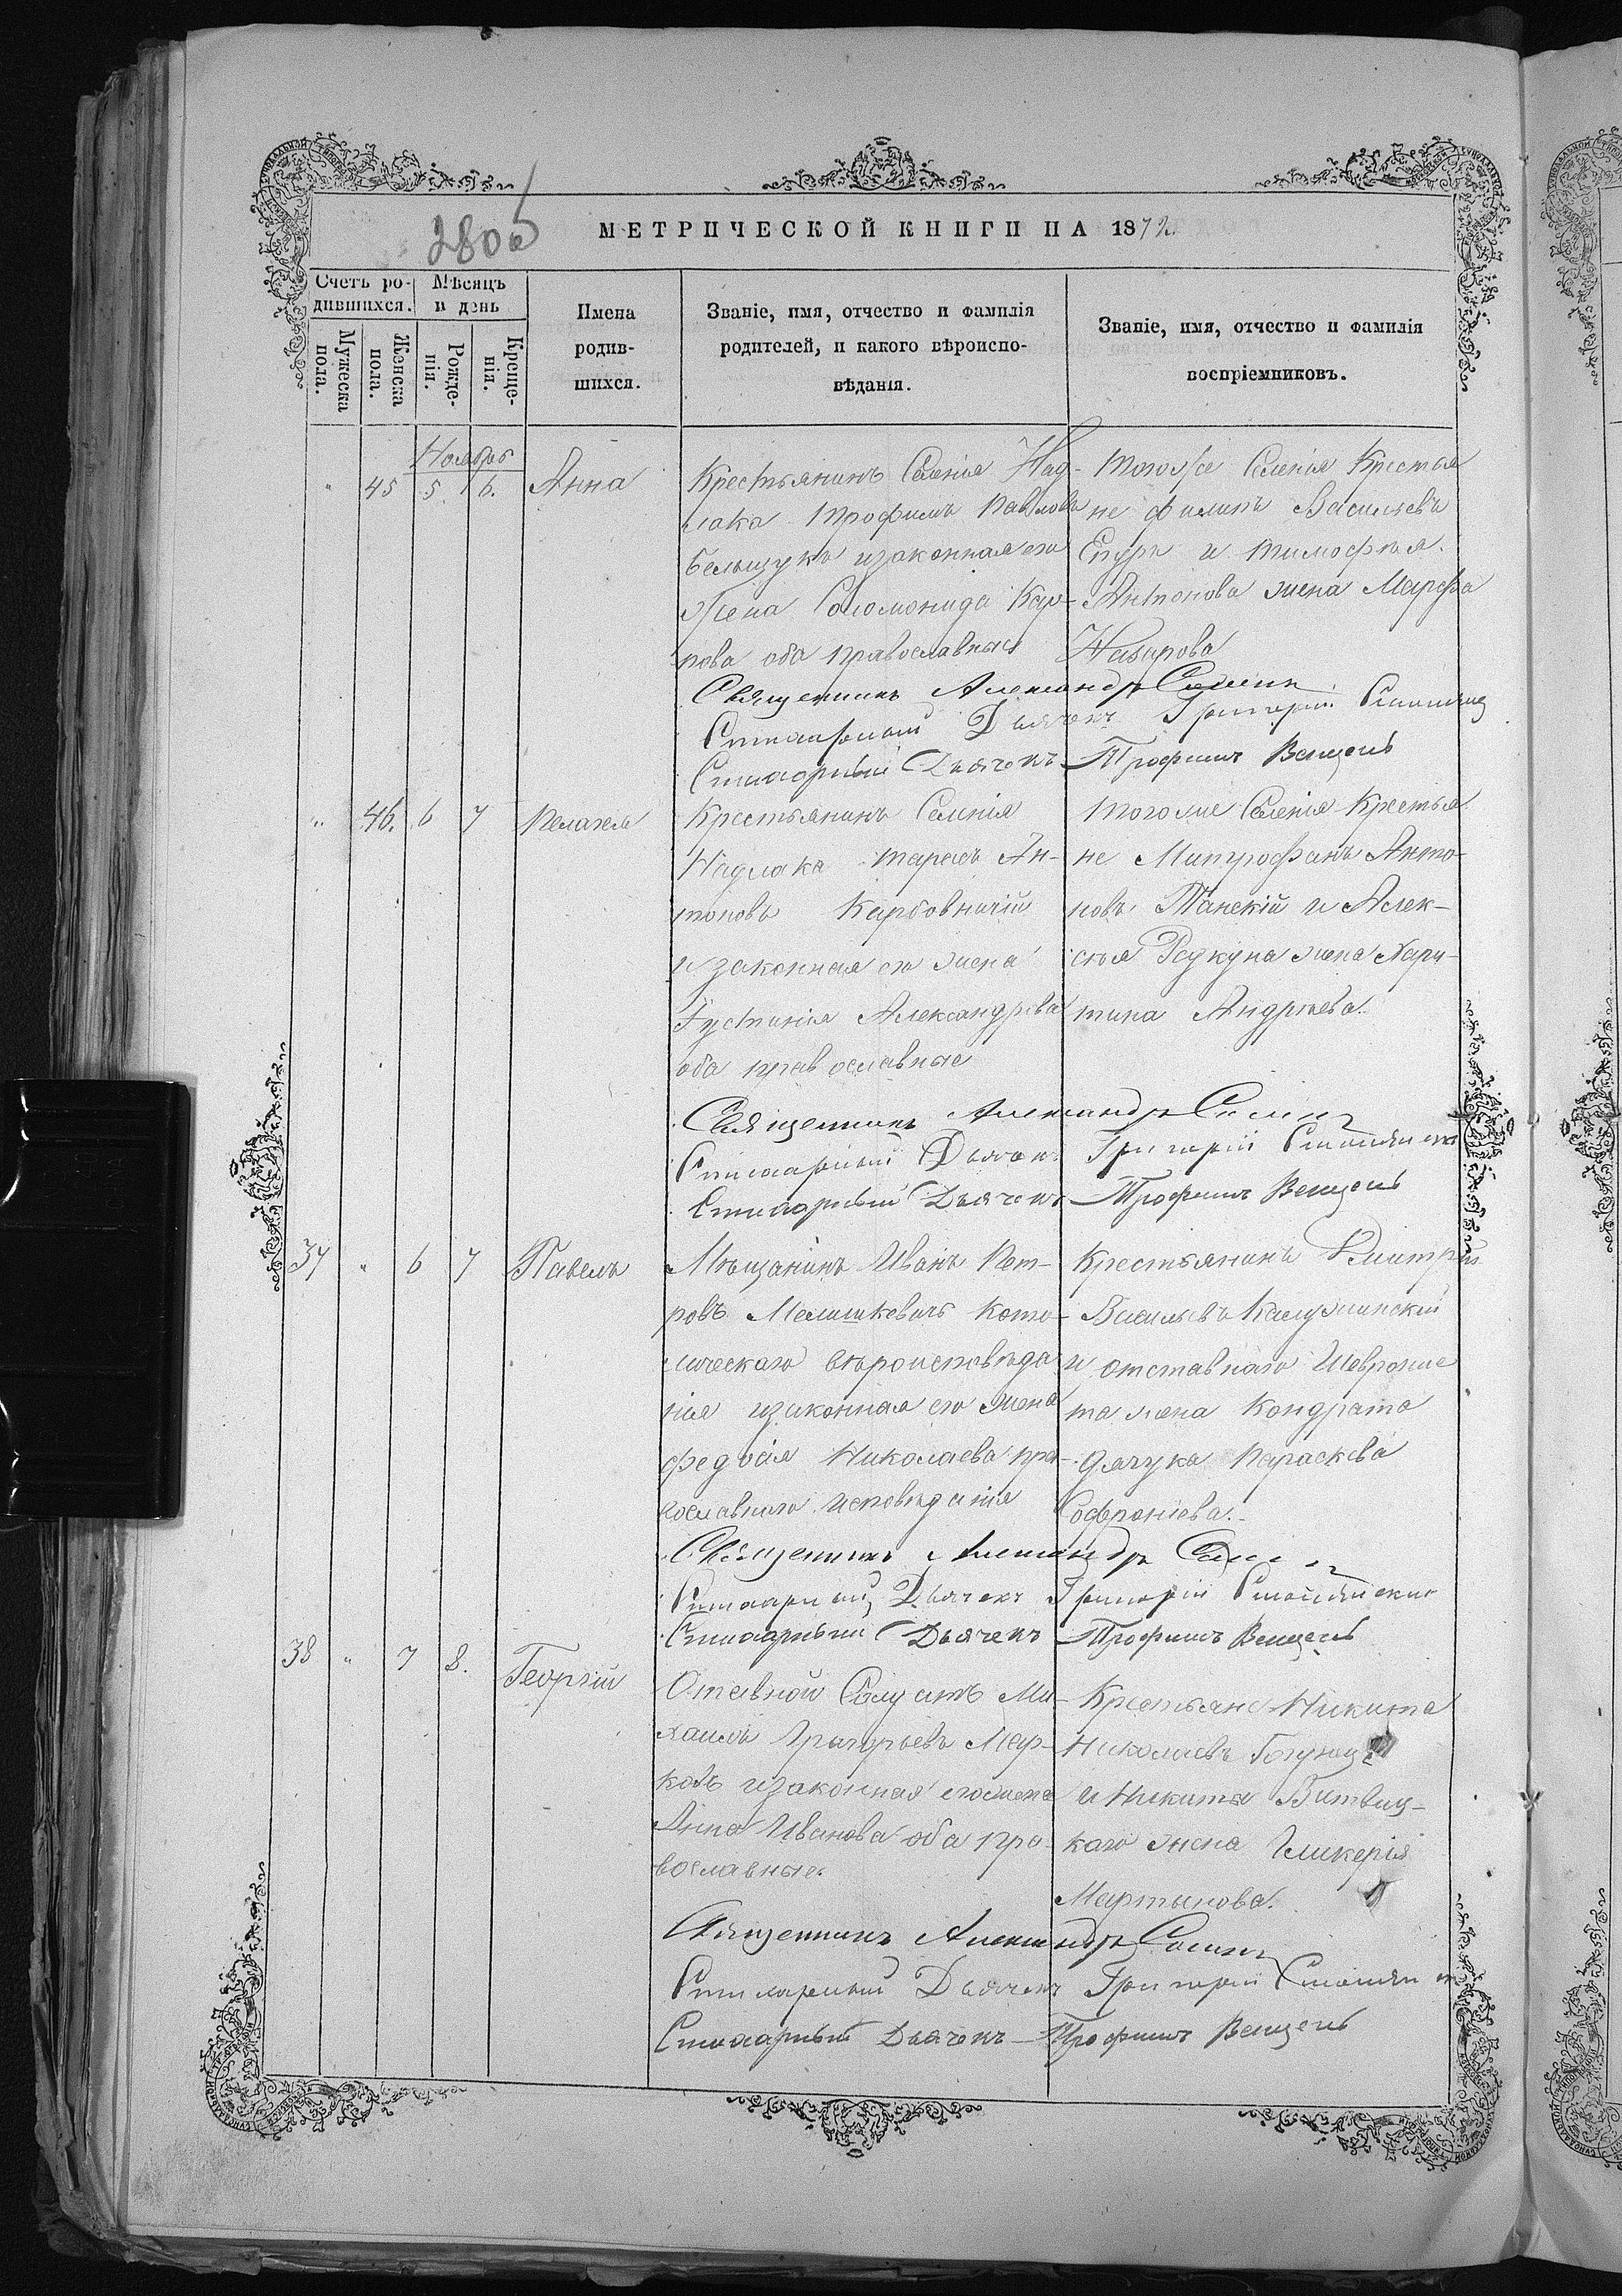 280 об
МЕТРИЧЕСКОЙ КНИГИ НА 1872
Счетъ ро-
дившихся.
Мѣсяцъ
и день
Мужеска
пола.
Женска
пола.
Рожде-
нія.
Креще-
нія.
Имена
родив-
шихся.
Званіе, имя, отчество и фамилія
родителей, и какого вѣроиспо-
вѣданія.
Званіе, имя, отчество и фамилія
воспріемниковъ.
Ноябрь
" 45 5 6. Анна
Крестьянинъ Селенія Над-
лака Трофимъ Павловъ
Бельщукъ изаконная его
жена Соломонида Кар-
пова оба православныя
Тогоже Селенія Крестья
не Филипъ Васильевъ
и Тимофея
Антонова жена Марфа
Назарова
Священникъ Александръ
Стихарный Дьячекъ Григорій
Стихарный Дьячекъ Трофимъ Венцель
" 46. 6 7 Пелагея
Крестьянинъ Селенія
Надлака Тарасъ Ан-
тоновъ Карбовничій
и законная его жена
Іустинія Александрова
оба православные
Тогоже Селенія Крестья
не Митрофанъ Анто-
новъ Танскій и Алек-
сѣя Редкуна жена Хари-
тина Андрѣева.
Священникъ Александръ
Стихарный Дьячекъ Григорій
Стихарный Дьячекъ Трофимъ Венцель
37 " 6 7 Павелъ
Мѣщанинъ Иванъ Пет-
ровъ Мелишкевичъ Като-
лическаго вѣроисповѣда
нія изаконная его жена
Федосія Николаева пра-
вославнаго исповѣданія
Крестьянинъ Дмитрій
Васильевъ Калужинскій
и отставнаго
та жена Кондрата
Дячука Параскева
Софроніева.
Священникъ Александръ
Стихарный Дьячекъ Григорій
Стихарный Дьячекъ Трофимъ Венцель
38 " 7 8. Георгій
Отавной Солдатъ Ми-
хаилъ Григорьевъ Мар-
ковъ изаконная его жена
Анна Иванова оба пра-
вославные.
Крестьяне Никита
Николаевъ
и Никиты Витвиц-
каго жена Гликерія
Мартынова.
Священникъ Александръ
Стихарный Дьячекъ Григорій
Стихарный Дьячекъ Трофимъ Венцель